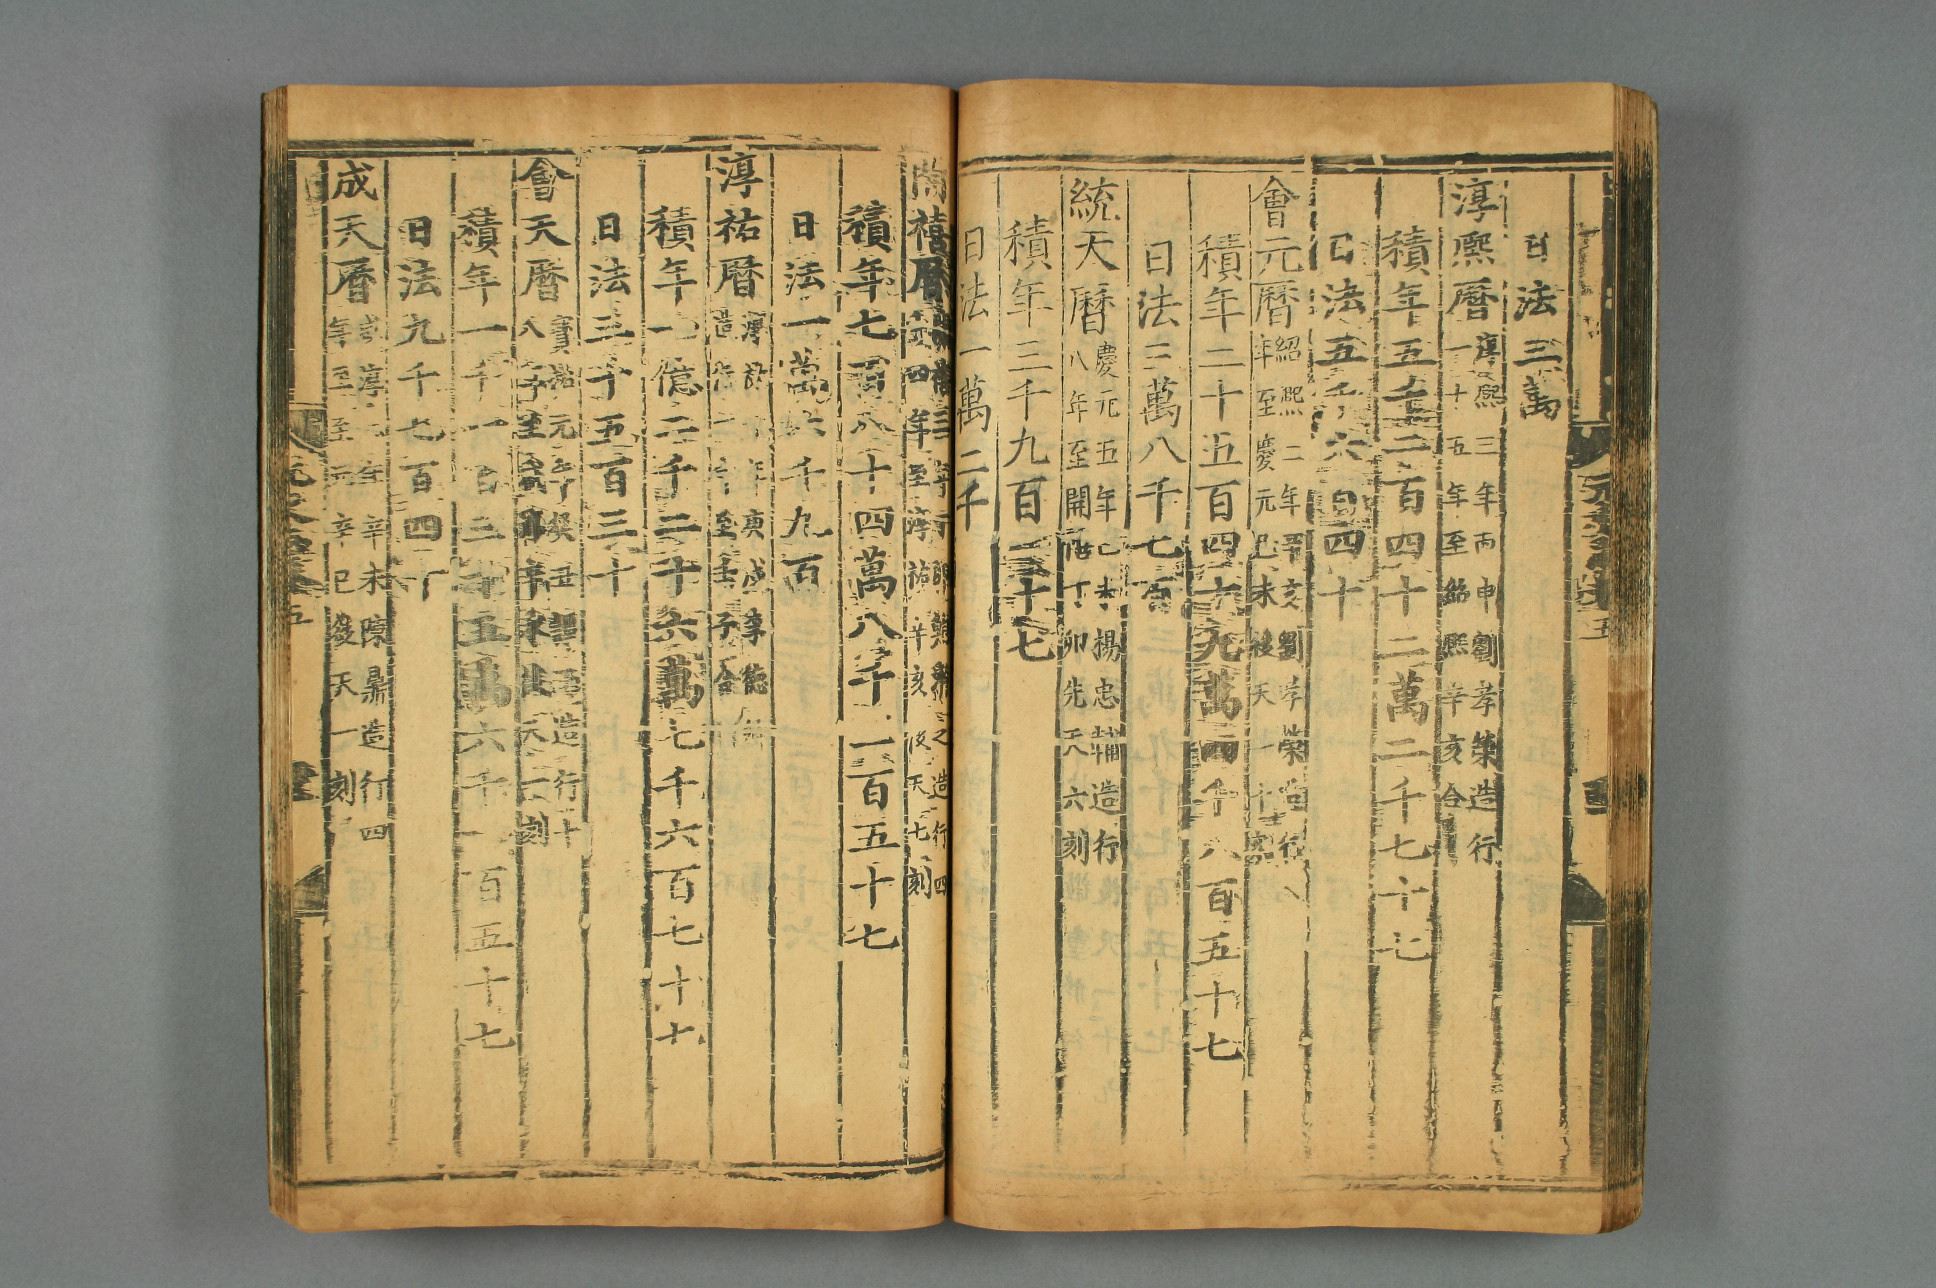 日法三萬
淳熙曆淳熙三年丙申劉孝榮造行
一十五年至紹熙辛亥合
積年五千二百四十二萬二千七十七
日法五千六百四十
會元曆紹熙二年辛亥劉孝榮造行八
年至慶元己未後天一十刻
積年二十五百四十九萬四千八百五十七
日法三萬八千七百
統天曆慶元五年己未楊忠輔造行
八年至開禧丁卯先天六刻
積年三千九百一十七
日法一萬二千
開禧曆開禧三年丁卯鮑澣之造行四
十四年至淳祐辛亥後天七刻
積年七百八十四萬八千一百五十七
日法一萬六千九百
淳祐曆淳祐十年庚戌李德卿
造行一年至壬子合
積年一億二千二十六萬七千六百七十七
日法三千五百三十
會天曆寶祐元年癸丑譚玉造行十
八年至咸淳辛未後天一刻
積年一千一百三十五萬六千一百五十七
日法九千七百四十
成天曆咸淳七年辛未陳鼎造行四
年至至元辛巳後天一刻